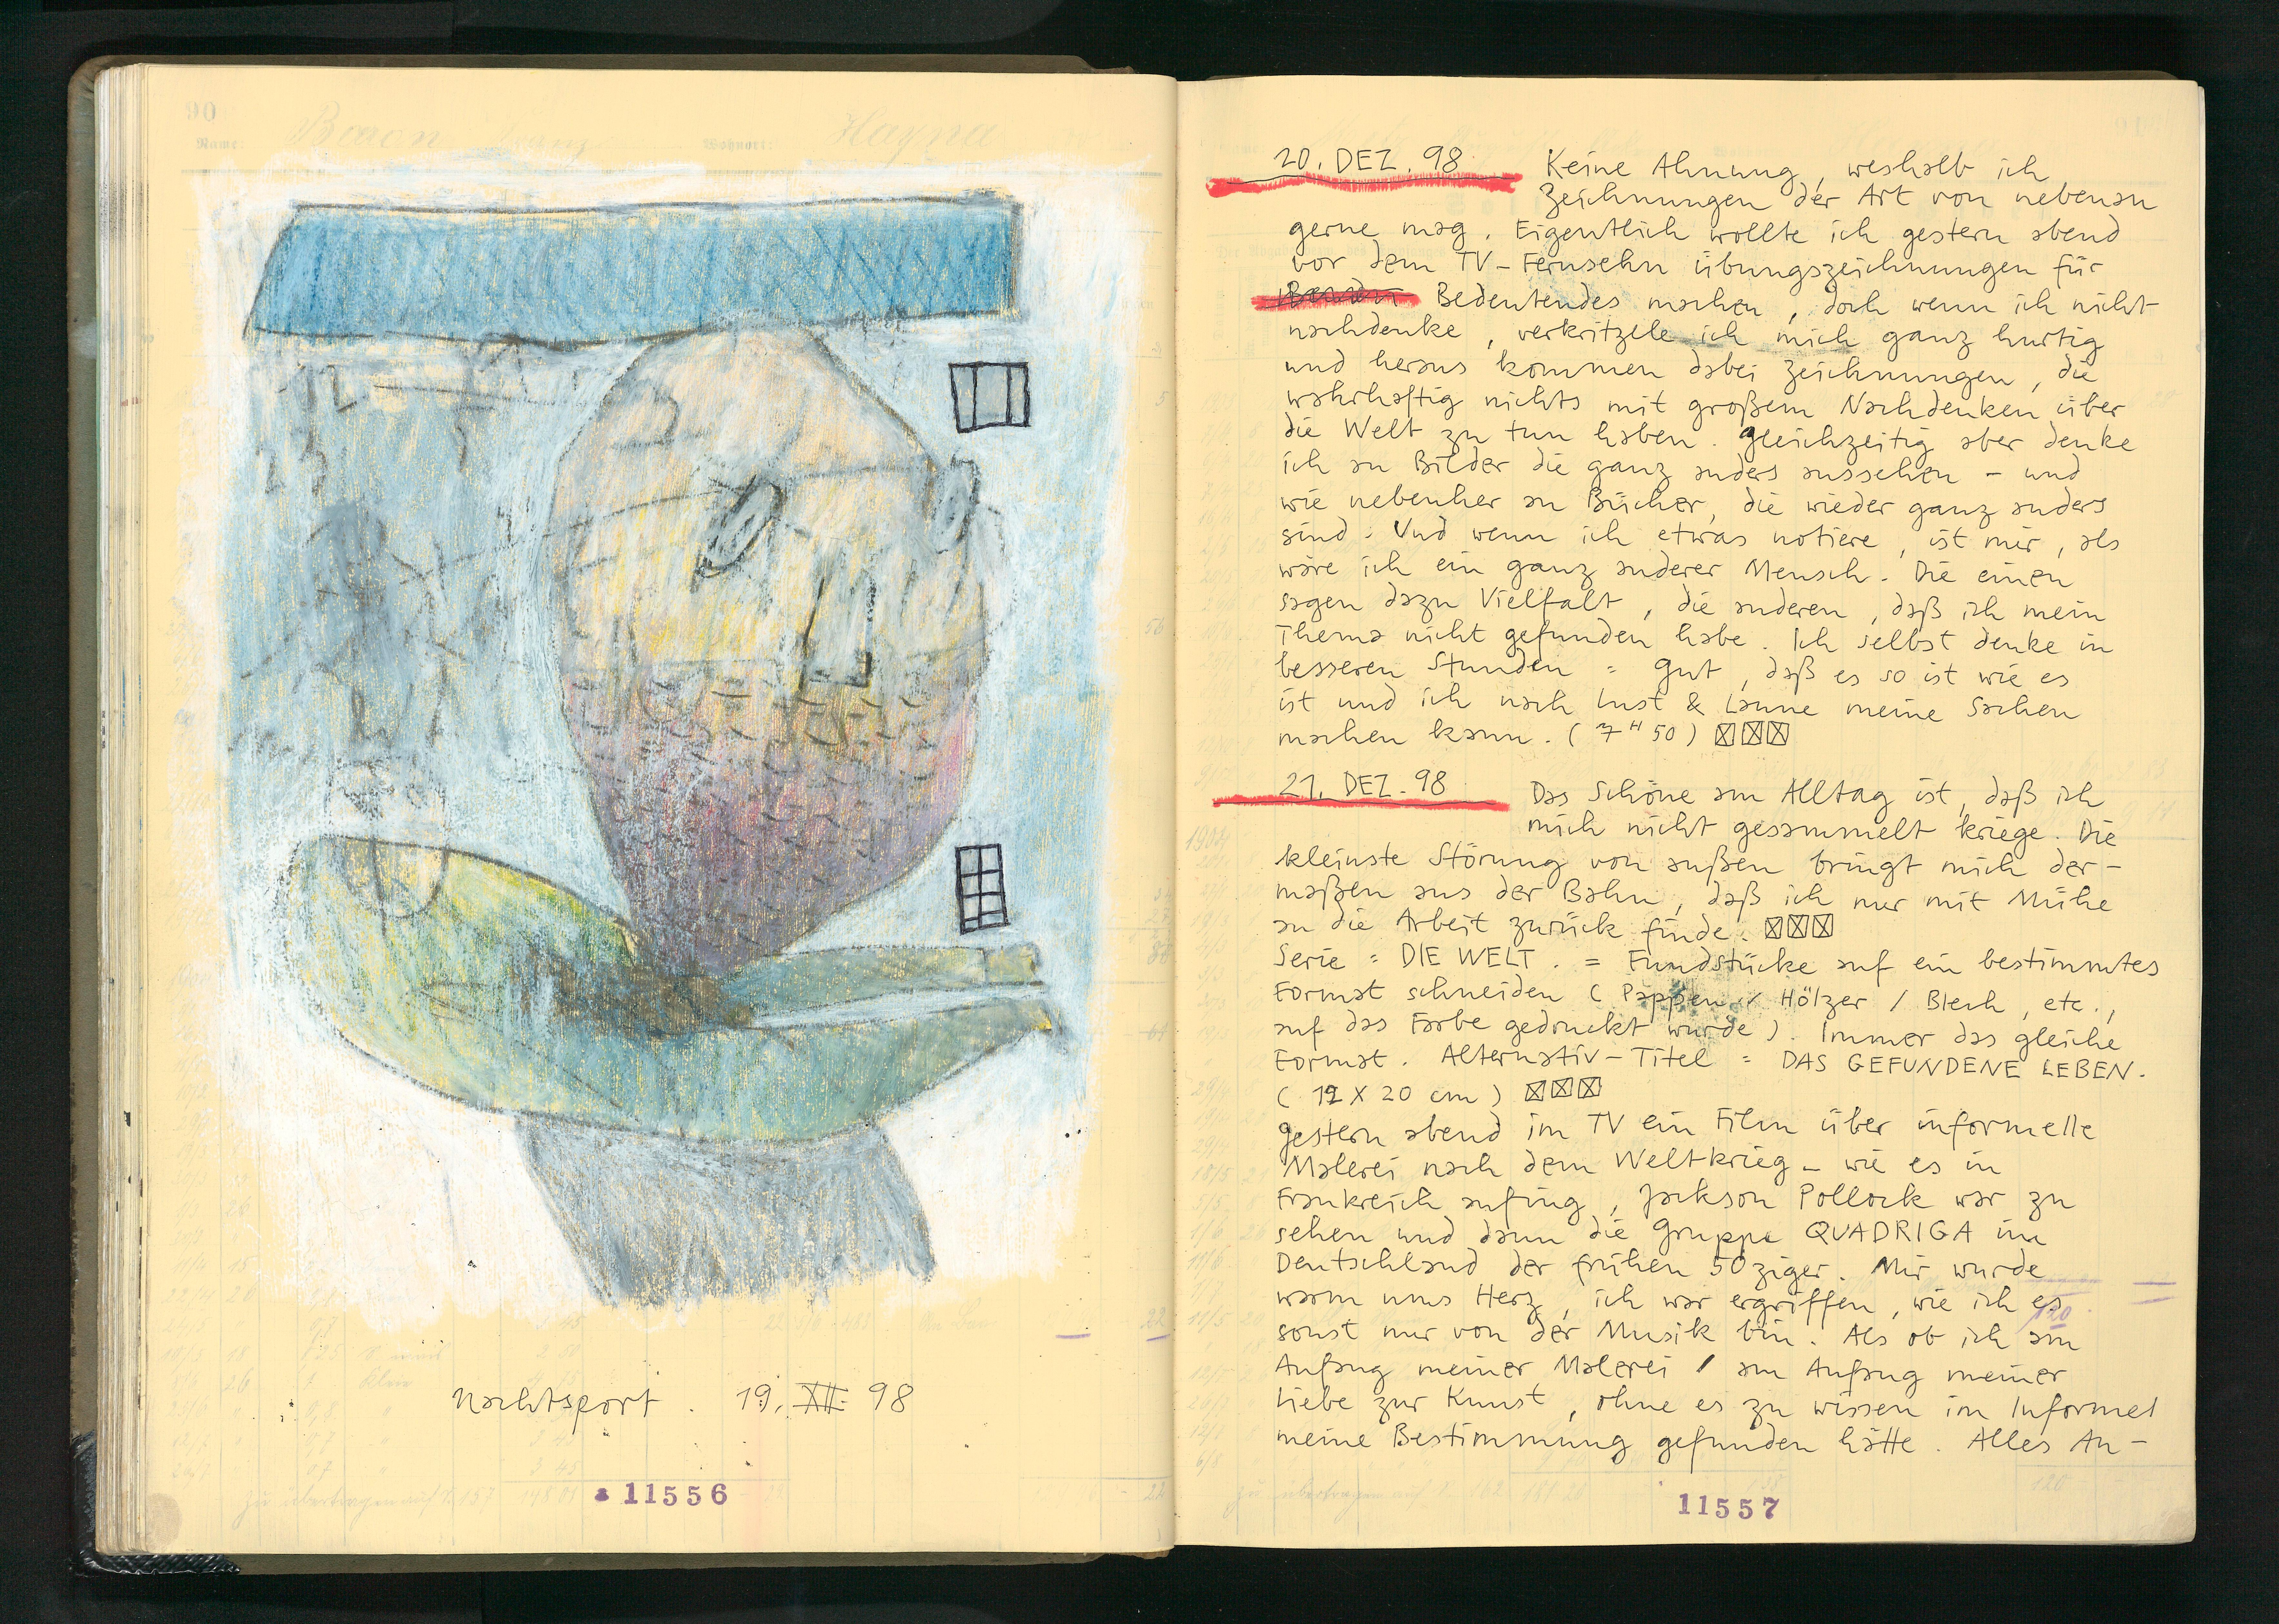 90
Name: Baron Franz Wohnort: Hayna
Nachtsport . 19. XII. 98
Zu übertragen auf S. 157
11556
20. DEZ. 98 Keine Ahnung, weshalb ich
Zeichnungen der Art von nebenan
gerne mag. Eigentlich wollte ich gestern abend
vor dem TV-Fernsehn Übungszeichnungen für
Bedeutendes machen, doch wenn ich nicht
nachdenke, verkritzele ich mich ganz hurtig
und heraus kommen dabei Zeichnungen, die
wahrhaftig nichts mit großem Nachdenken über
die Welt zu tun haben. Gleichzeitig aber denke
ich an Bilder die ganz anders aussehen – und
wie nebenher an Bücher, die wieder ganz anders
sind. Und wenn ich etwas notiere, ist mir, als
wäre ich ein ganz anderer Mensch. Die einen
sagen dazu Vielfalt, die anderen, daß ich mein
Thema nicht gefunden habe. Ich selbst denke in
besseren Stunden = gut, daß es so ist wie es
ist und ich nach Lust & Laune meine Sachen
machen kann. (7 H 50)
21. DEZ. 98 Das Schöne am Alltag ist, daß ich
mich nicht gesammelt kriege. Die
kleinste Störung von außen bringt mich der-
maßen aus der Bahn, daß ich nur mit Mühe
an die Arbeit zurück finde.
Serie = DIE WELT. = Fundstücke auf ein bestimmtes
Format schneiden (Pappen / Hölzer / Blech, etc.,
auf das Farbe gedruckt wurde). Immer das gleiche
Format. Alternativ-Titel = DAS GEFUNDENE LEBEN.
(12 X 20 cm)
Gestern abend im TV ein Film über informelle
Malerei nach dem Weltkrieg – wie es in
Frankreich anfing, Jackson Pollock war zu
sehen und dann die Gruppe QUADRIGA im
Deutschland der frühen 50ziger. Mir wurde
warm ums Herz, ich war ergriffen, wie ich es
sonst nur von der Musik bin. Als ob ich am
Anfang meiner Malerei / am Anfang meiner
Liebe zur Kunst, ohne es zu wissen im Informel
meine Bestimmung gefunden hätte. Alles An-
11557